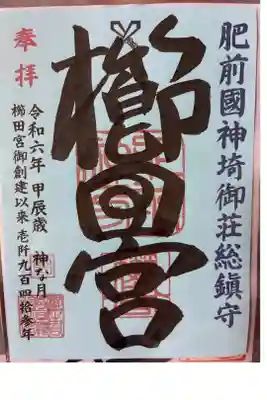 肥前國神埼御荘総鎮守
櫛田宮
奉拝
令和六年 甲辰歳 神な月
櫛田宮御創建以来壱阡九百四拾参年